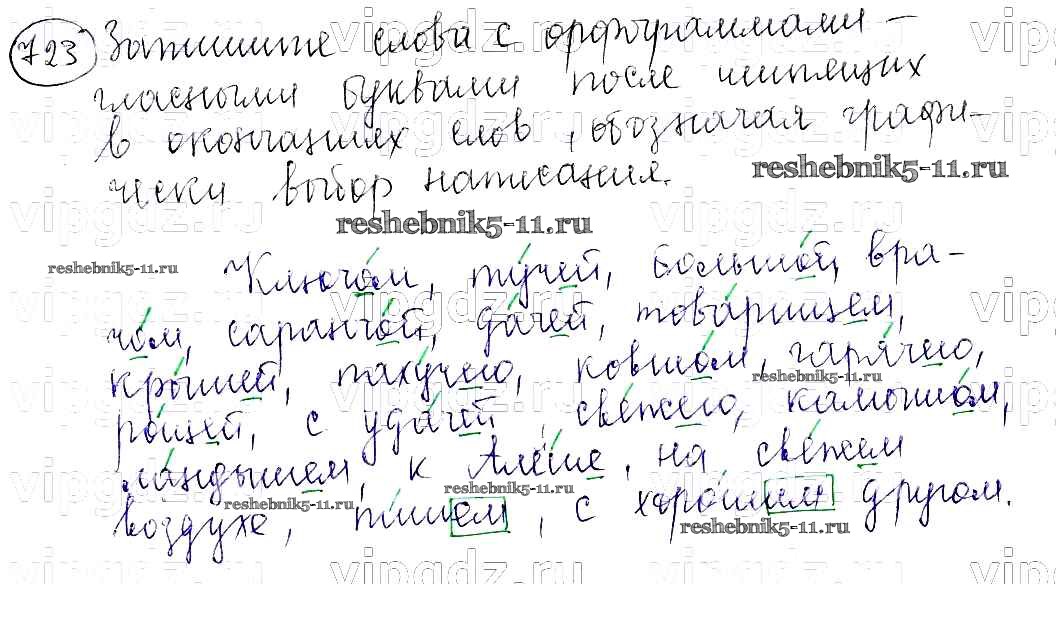 723 Запишите слова с орфограммами –
гласными буквами после шипящих
в окончаниях слов, обозначая графи-
чески выбор написания.
reshebnik5-11.ru
reshebnik5-11.ru
reshebnik5-11.ru
Ключом, тучей, большой, вра-
чом, саранчой, дачей, товарищем,
крышей, пахучего, ковшом, горячего,
reshebnik5-11.ru
рощей, с удачей, свежего, камышом,
ландышем, к Алёше, на свежем
reshebnik5-11.ru
reshebnik5-11.ru
воздухе, пишем, с хорошим другом.
reshebnik5-11.ru
vipgdz.ru